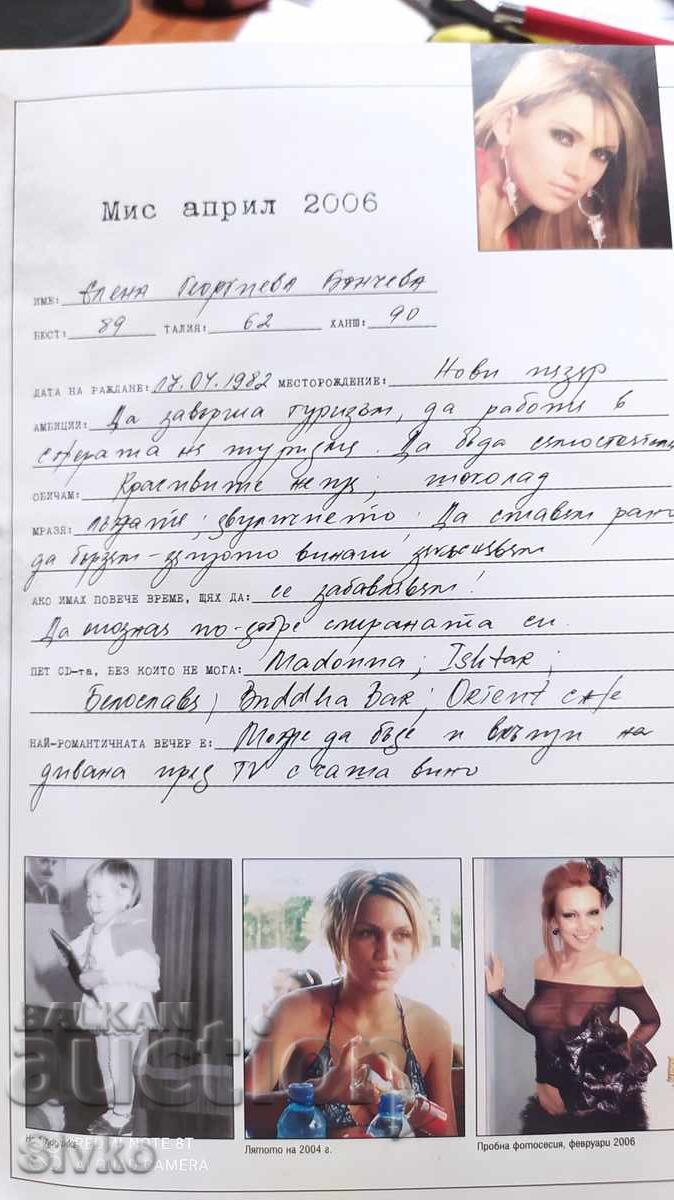 Мис април 2006
ИМЕ: Елена Георгиева Бончева
БЮСТ: 89 ТАЛИЯ: 62 ХАНШ: 90
ДАТА НА РАЖДАНЕ: 17.04.1982 МЕСТОРОЖДЕНИЕ: Нови пазар
АМБИЦИИ: Да завърша туризъм, да работя в
сферата на туризма. Да бъда самостоятелна
ОБИЧАМ: Красивите неща; шоколад
МРАЗЯ: лъжата; двуличието; Да ставам рано
да бързам - защото винаги закъснявам
АКО ИМАХ ПОВЕЧЕ ВРЕМЕ, ЩЯХ ДА: се забавлявам!
Да опозная по-добре страната си.
ПЕТ CD-та, БЕЗ КОИТО НЕ МОГА: Madonna; Ishtar;
Белослава; Buddha Bar; Orient cafe
НАЙ-РОМАНТИЧНАТА ВЕЧЕР Е: Може да бъде и вкъщи на
дивана пред TV с чаша вино
BALKAN
auction
REDMI NOTE 8T
AI QUAD CAMERA
sivko
Лятото на 2004 г.
Пробна фотосесия, февруари 2006